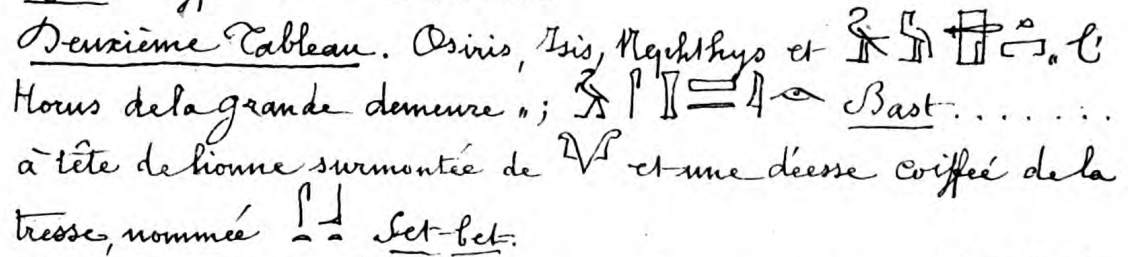 Deuxième Tableau. Osiris, Isis, Nephthys et „ l'
Horus de la grande demeure „; Bast . . . . . . .
à tête de lionne surmontée de et une déesse coiffée de la
tresse, nommée Set-bet.